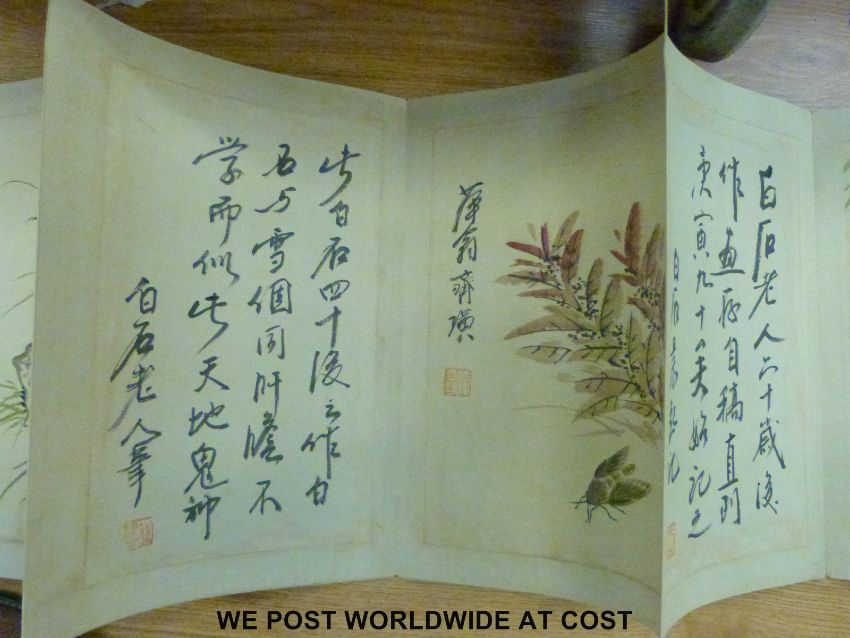 白石老人六十歲後
作画存自稿直到
庚寅九十矣始記之
白石
萍翁齊璜
此白石四十後之作白
石与雪個同肝膽不
学而似此天地鬼神
白石老人筆
WE POST WORLDWIDE AT COST